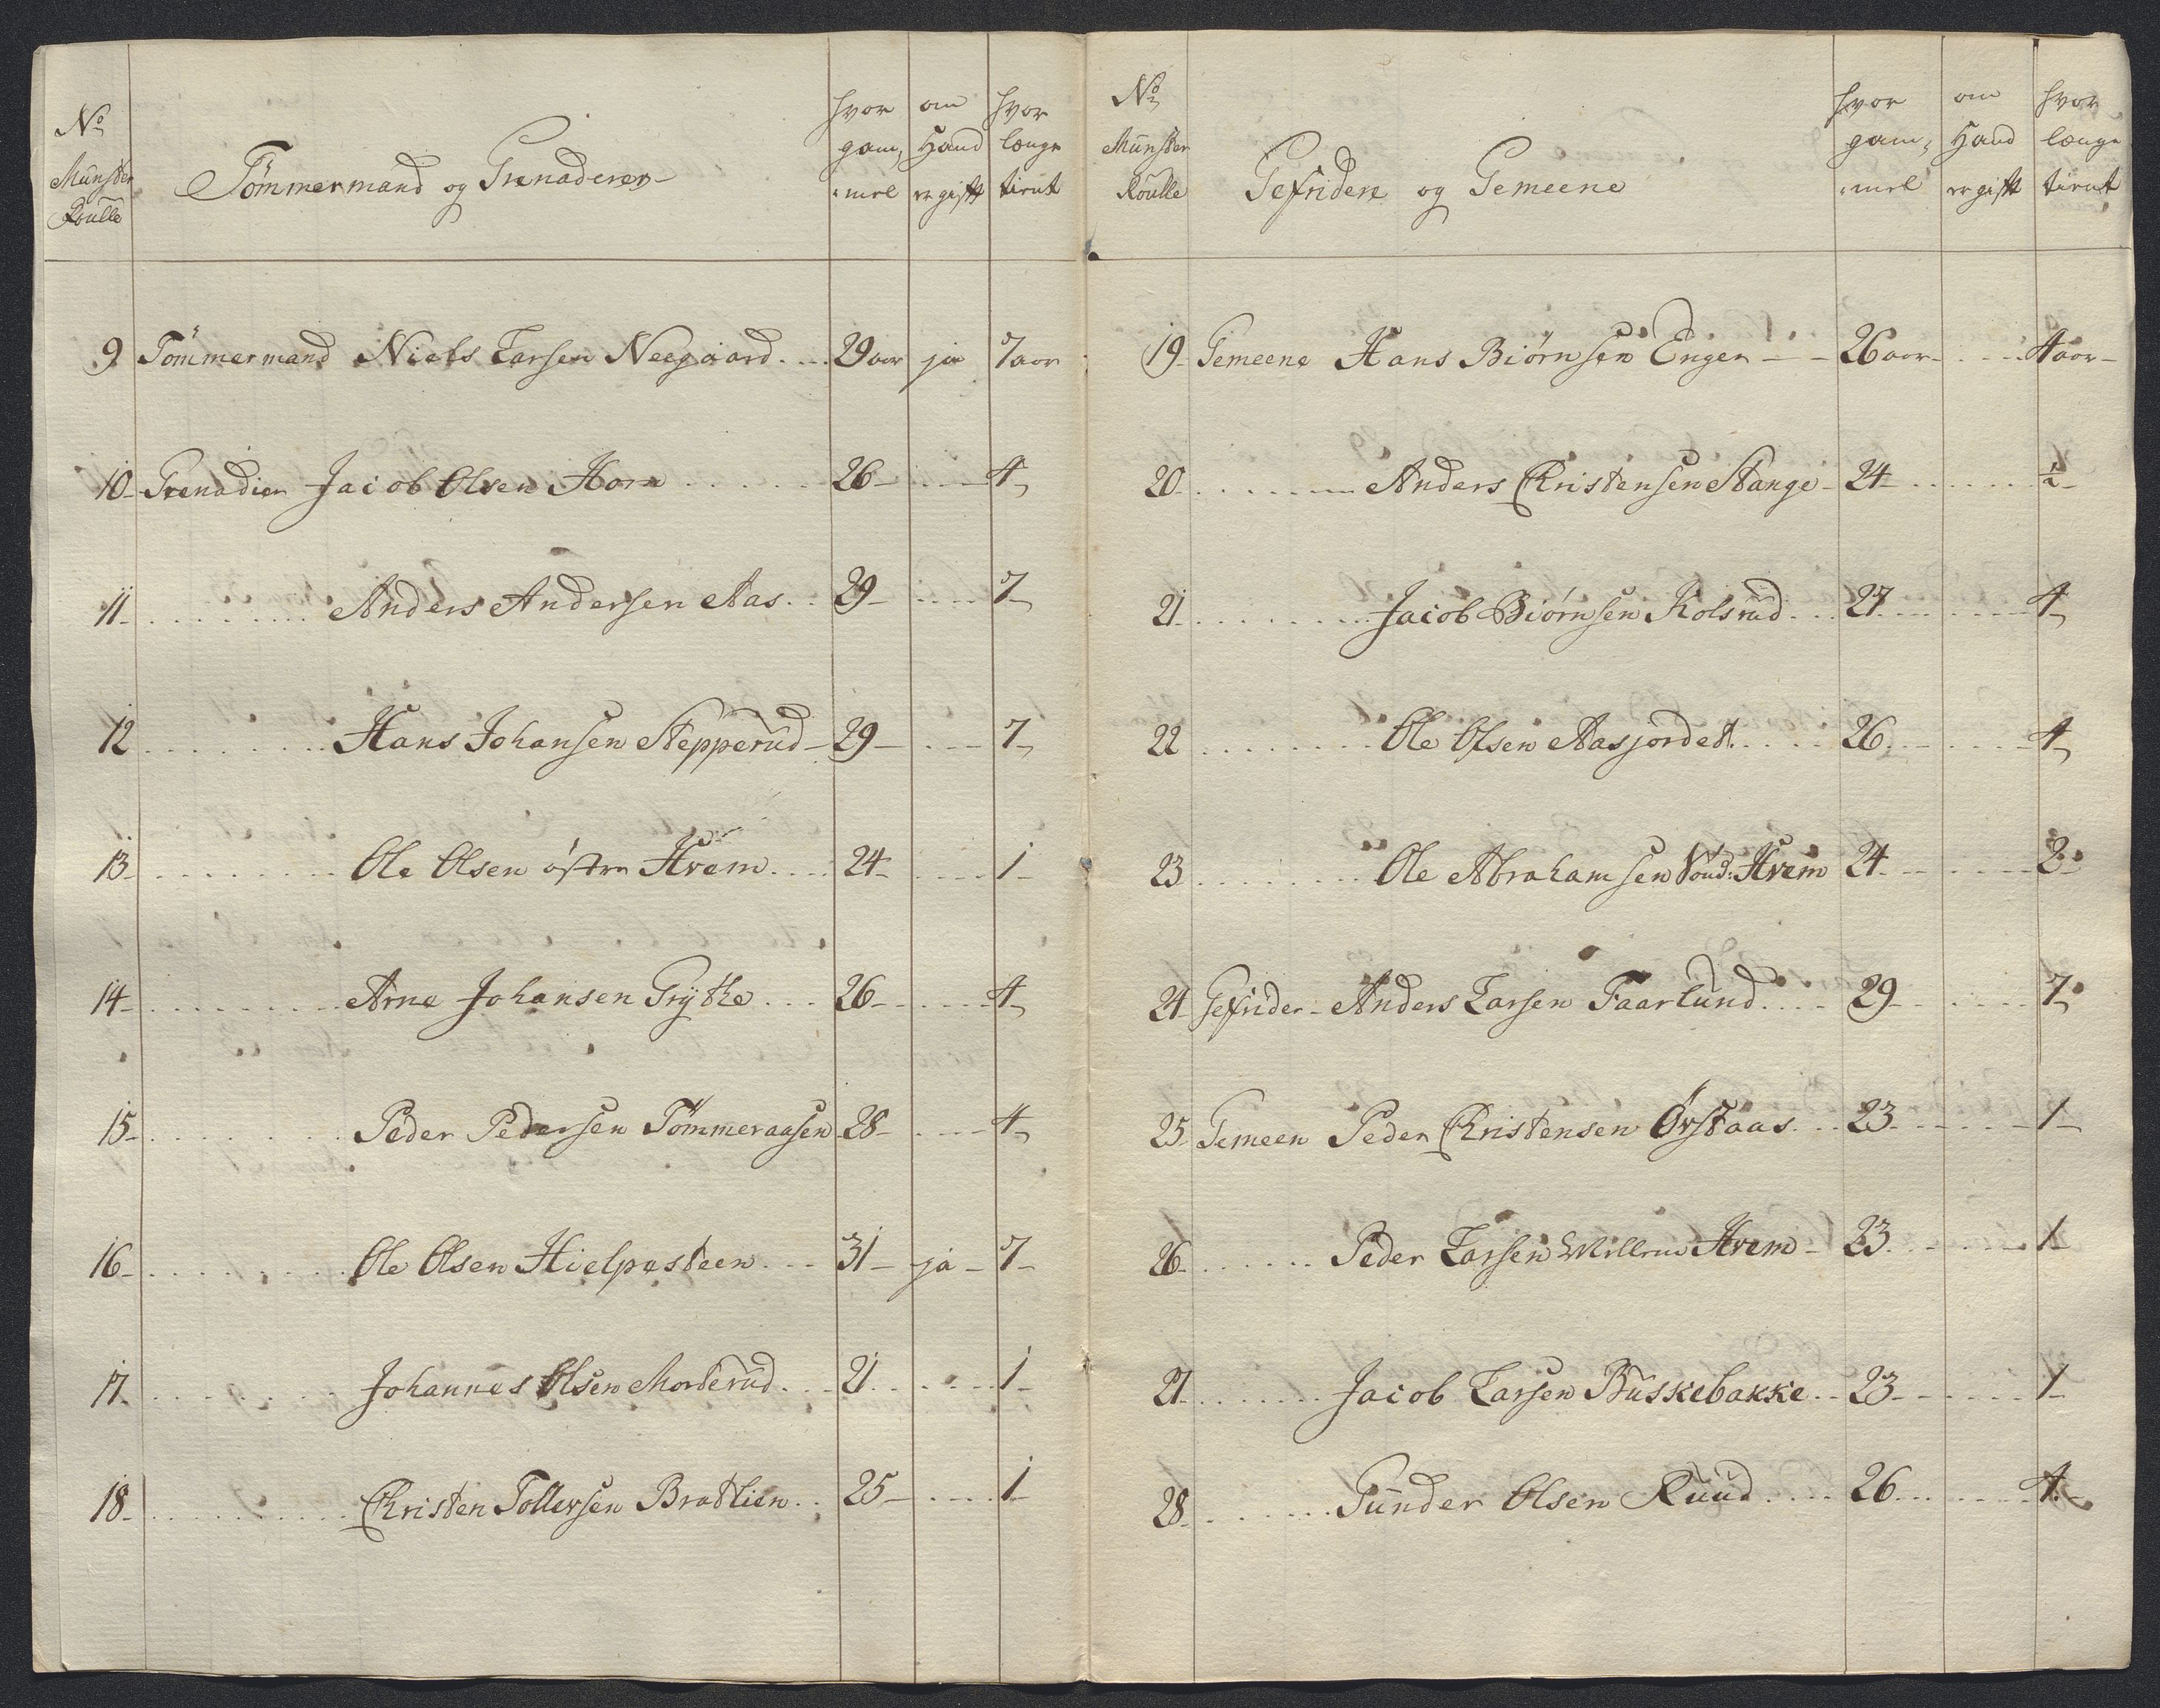 No
Munster
Roulle
Tömmermand og Grenaderer
hvor
gam,
mel
om
Hand
er gift
hvor
længe
tient
9 Tömmermand Niels Larsen Neegaard 29 aar ja 7 aar
10 Grenadier Jacob Olsen Horn 26 4
11 Anders Andersen Aas 29 7
12 Hans Johansen Stepperud 29 7
13 Ole Olsen östre Hvem 24 1
14 Arne Johansen Grythe 26 4
15 Peder Pedersen Tömmeraasen 28 4
16 Ole Olsen Hielpesteen 31 ja 7
17 Johannes Olsen Morterud 21 1
18 Christen Tollersen Bratlien 25 1
No
Munster
Roulle
Gefridere og Gemeene
hvor
gam,
mel
om
Hand
er gift
hvor
længe
tient
19 Gemeene Hans Biörnsen Enger 26 aar 4 aar
20 Anders Christensen Stange 24 ½
21 Jacob Biörnsen Kolsrud 27 4
22 Ole Olsen Aasjordet 26 4
23 Ole Abrahamsen Hvem 24 2
24 Gefrider Anders Larsen Faarlund 29 7
25 Gemeen Peder Christensen Ørstaas 23 1
26 Peder Larsen Millem Hvem 23 1
27 Jacob Larsen Buskebakke 23 1
28 Gunder Olsen Ruud 26 4